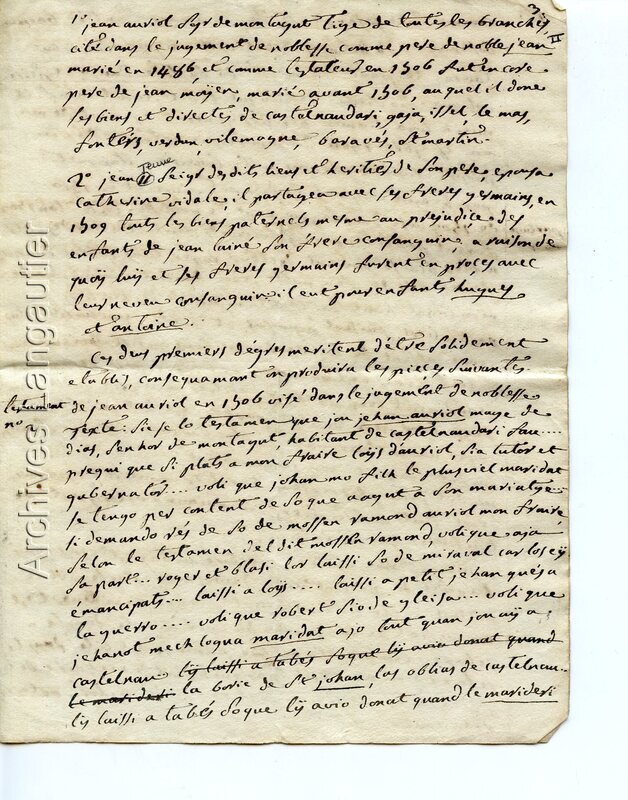 3
II
1° jean auriol sgr de montagut tige de toutes les branches
cité dans le jugement de noblesse comme pere de noble jean
marié en 1486 et comme testateur en 1506 fut encore
pere de jean moyen, marié avant 1506, auquel il done
ses biens et directes de castelnaudari, gaja, issel, le mas,
fonters, verdun, vilemagne, baravés, St martin.
jeune
2° jean II seigr des dits biens et heritier de son pere epousa
catherine vidale, il partagea avec ses freres germains, en
1509 touts les biens paternels mesme au prejudice des
enfants de jean lainé son frere consanguin, a raison de
quoy luy et ses freres germains furent en procés avec
leur neveu consanguin: il eut pour enfants hugues
et antoine.
Ces deus premiers dégres meritent d'étre solidement
etablis, consequamant on produira les pieces suivantes.
testament
no
de jean auriol en 1506 visé dans le jugement de noblesse
texte: sie se lo testamen que jou jehan auriol mage de
dias, senhor de montagut, habitant de castelnaudari fau....
prequi que si plats a mon fraire loys d'auriol, sia tutor et
gubernator.... voli que johan mo filh le plus viel maridat
se tengo per content de so que aagut a son mariatge...
si demando rés de so de mossen ramond auriol mon fraire,
selon le testamen del dit ramond, voli que aja
sa part... roger et blasi lor laissi so de miraval carloseij
émancipats... laissi a loys..... laissi a petit jehan qués a
la guerro.... voli que robert sio de gleisa... voli que
jehanot mech logna maridat ajo tout quan jou aij a
castelnau lij laissi a tabés so que lij avio donat quand
le marideri la borie de St johan, las oblias de castelnau..
lij laissi a tabés so que lij avio donat quand le marideri
Archives Langautier